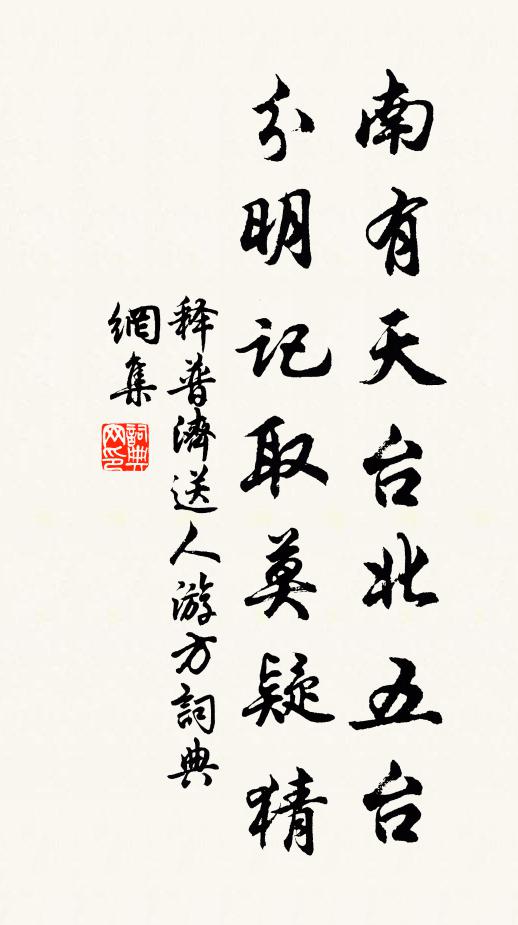 南有天台北五台
分明记取莫疑猜
释普濟送人游方詞典
網集
詞典网印